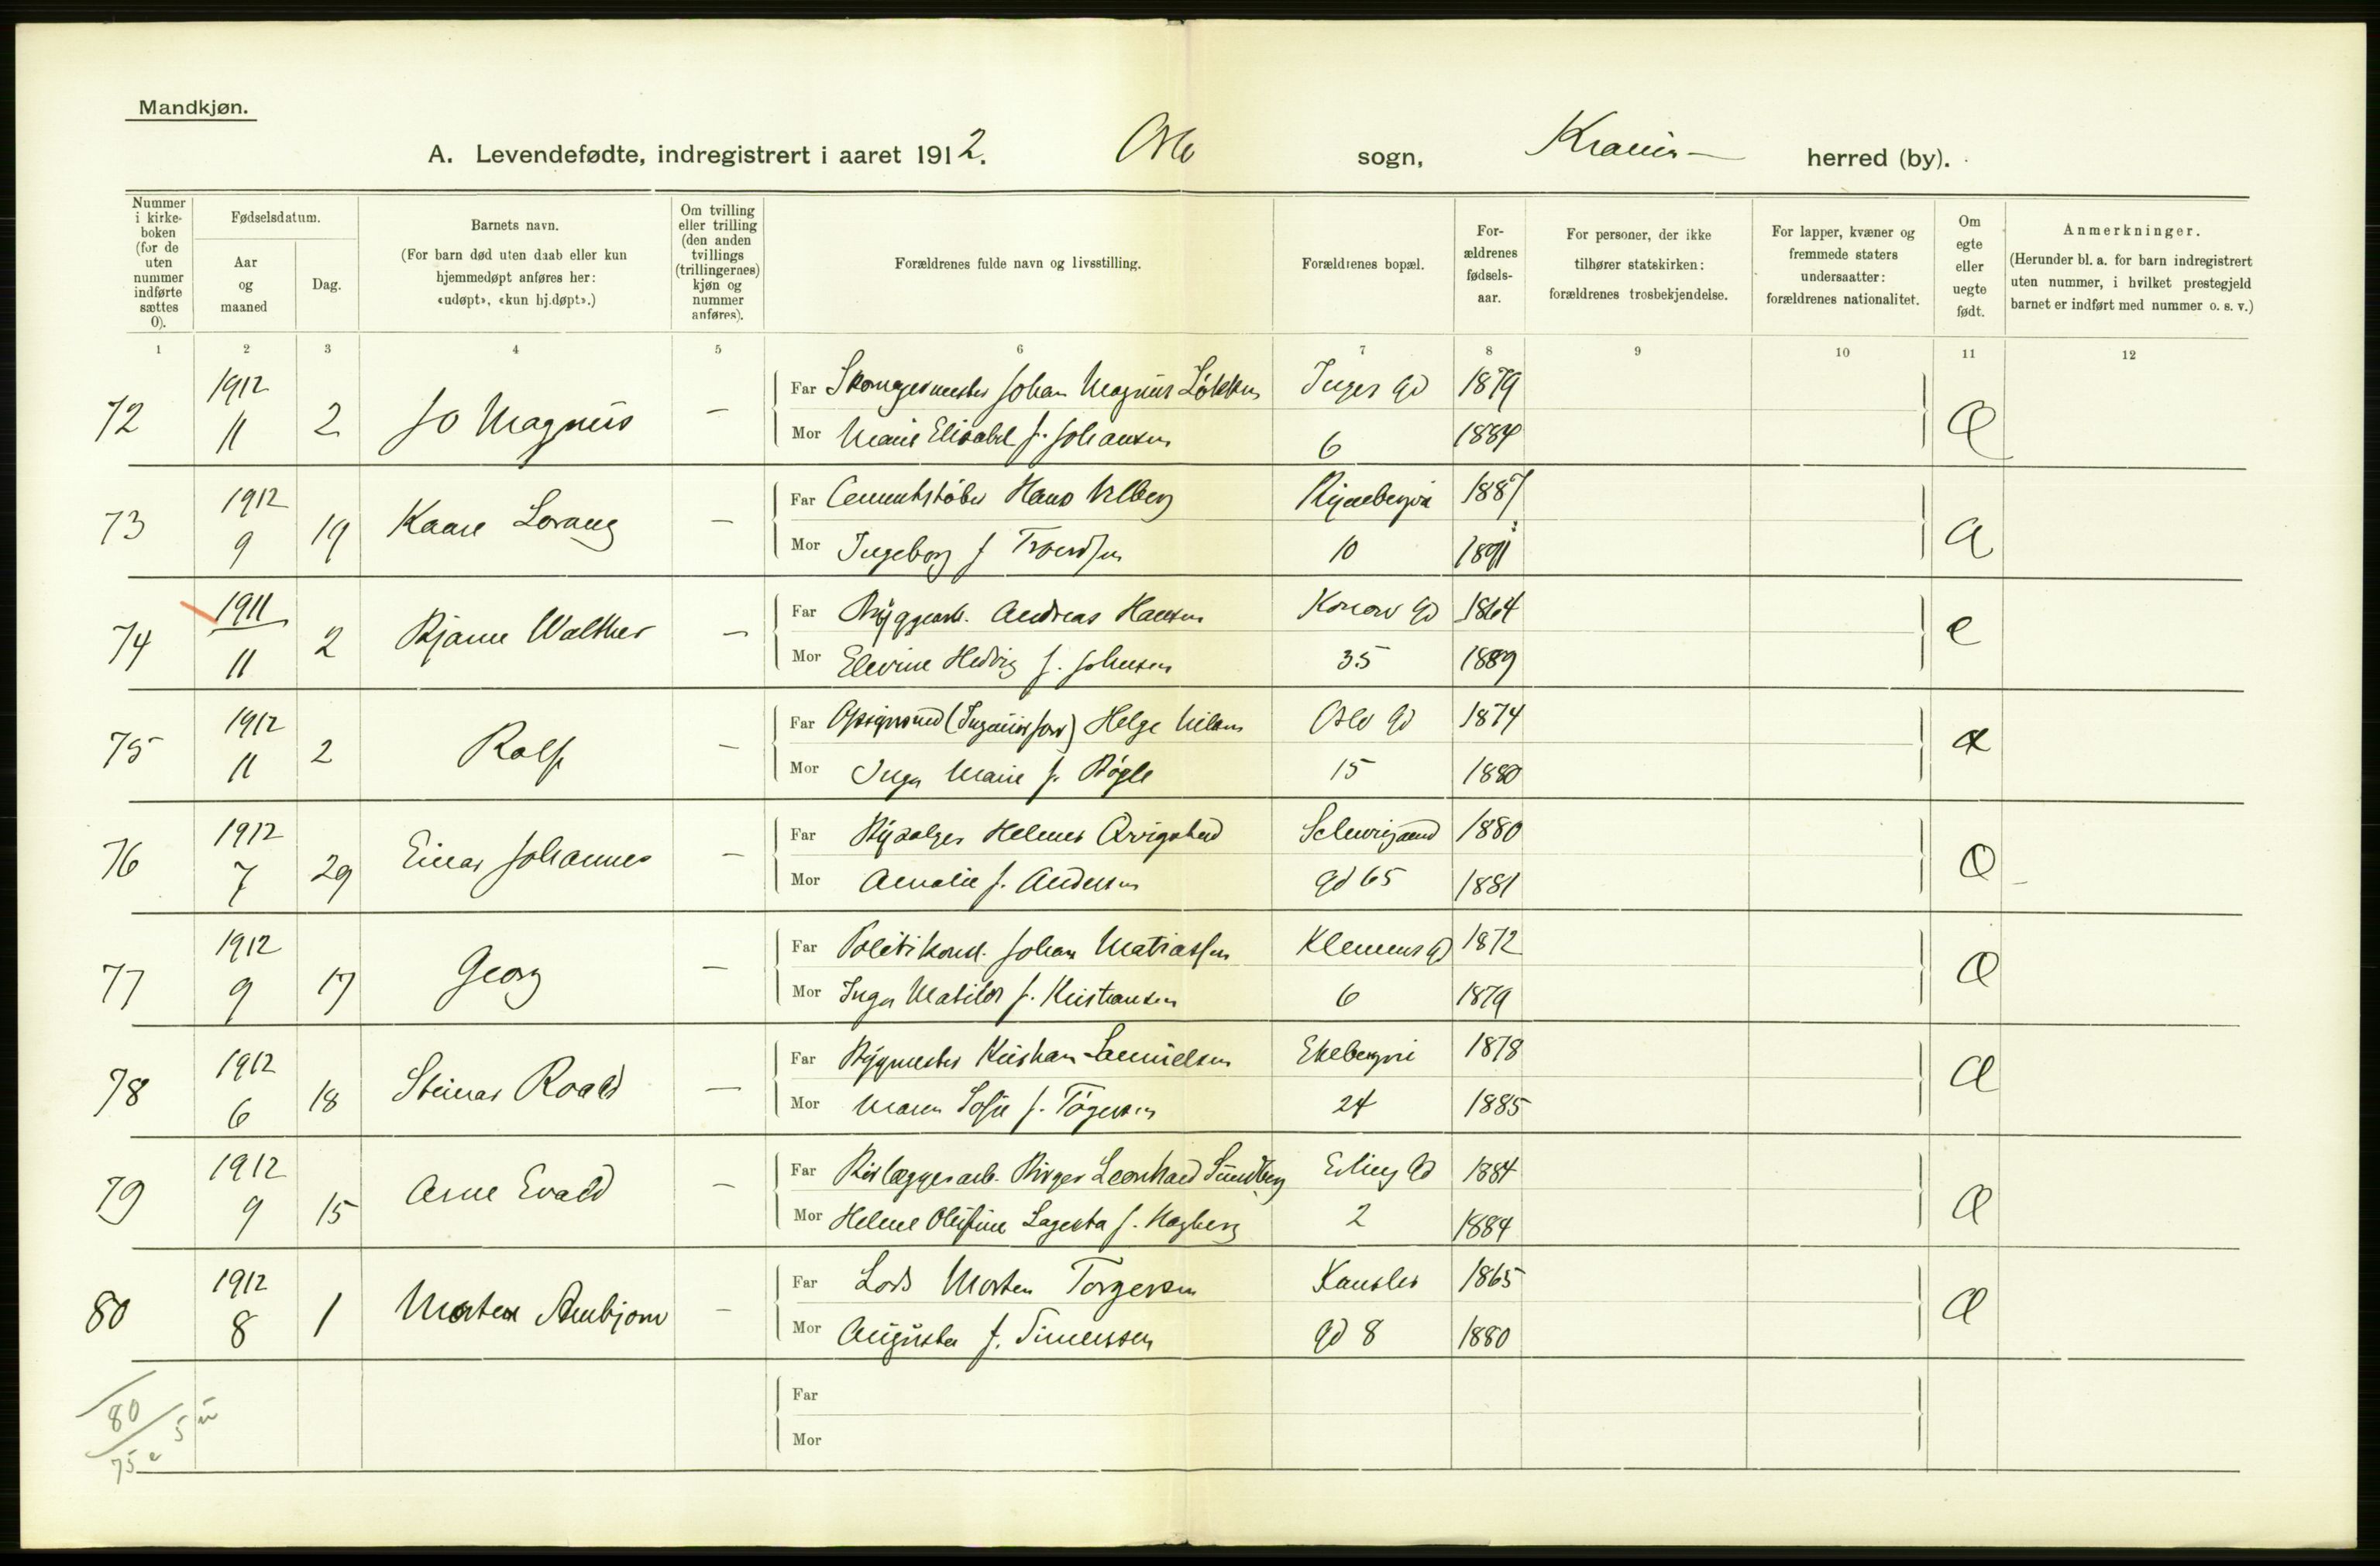 Mandkjøn.
A. Levendefødte, indregistrert i aaret 1912. Oslo sogn, Kra herred (by).
Nummer i kirke- boken (for de uten nummer indførte sættes 0).
Fødselsdatum.
Aar og maaned
Dag.
Barnets navn.
(For barn død uten daab eller kun hjemmedøpt anføres her: «udøpt», «kun hj.døpt».)
Om tvilling eller trilling (den anden tvillings (trillingernes) kjøn og nummer anføres).
Forældrenes fulde navn og livsstilling.
Forældrenes bopæl.
For- ældrenes fødsels- aar.
For personer, der ikke tilhører statskirken: forældrenes trosbekjendelse.
For lapper, kvæner og fremmede staters undersaatter: forældrenes nationalitet.
Om egte eller uegte født.
Anmerkninger.
(Herunder bl. a. for barn indregistrert uten nummer, i hvilket prestegjeld barnet er indført med nummer o. s. v.)
1 2 3 4 5 6 7 8 9 10 11 12
72 1912 11 2 Jo Magnus — Far Skomagermester Johan Magnus Løkken Inges Gd 1879
Mor Marie Elisabet f. Johansen 6 1884
73 1912 9 19 Kaare Lorang — Far Cementstøber Hans Velberg 1887
Mor Ingeborg f Trondsen 10 1891
74 1911 11 2 Bjarne Walther — Far Bryggearb. Andreas Hansen Konow Gd 1864 e
Mor Elevine Hedvig f. Johnsen 35 1889
75 1912 11 2 Rolf — Far Opsigtsmand Helge Nilsen Oslo Gd 1874
Mor Inga Marie f. Bøgle 15 1880
76 1912 7 29 Einar Johannes — Far Helmer Qvrigstad Schweigaard 1880
Mor Amalie f. Andersen Gd 65 1881
77 1912 9 17 Georg — Far Politikonst. Johan Matiassen Klemens Gd 1872
Mor Inga Matilde f. Kristiansen 6 1879
78 1912 6 18 Steinar Roald — Far Bygmester Kristian Samuelsen Ekebergvei 1878
Mor Maren Sofie f. Tøgersen 24 1885
79 1912 9 15 Arne Evald — Far Rørlæggerarb. Birger Leonhard Sundberg Erling Gd 1884
Mor Helene Olefine Lagerta f. Hagberg 2 1884
80 1912 8 1 Morten Arnbjørn — Far Lods Morten Torgersen Kansler 1865
Mor Augusta f. Simensen Gd 8 1880
Far
Mor
80
75 e 5 u